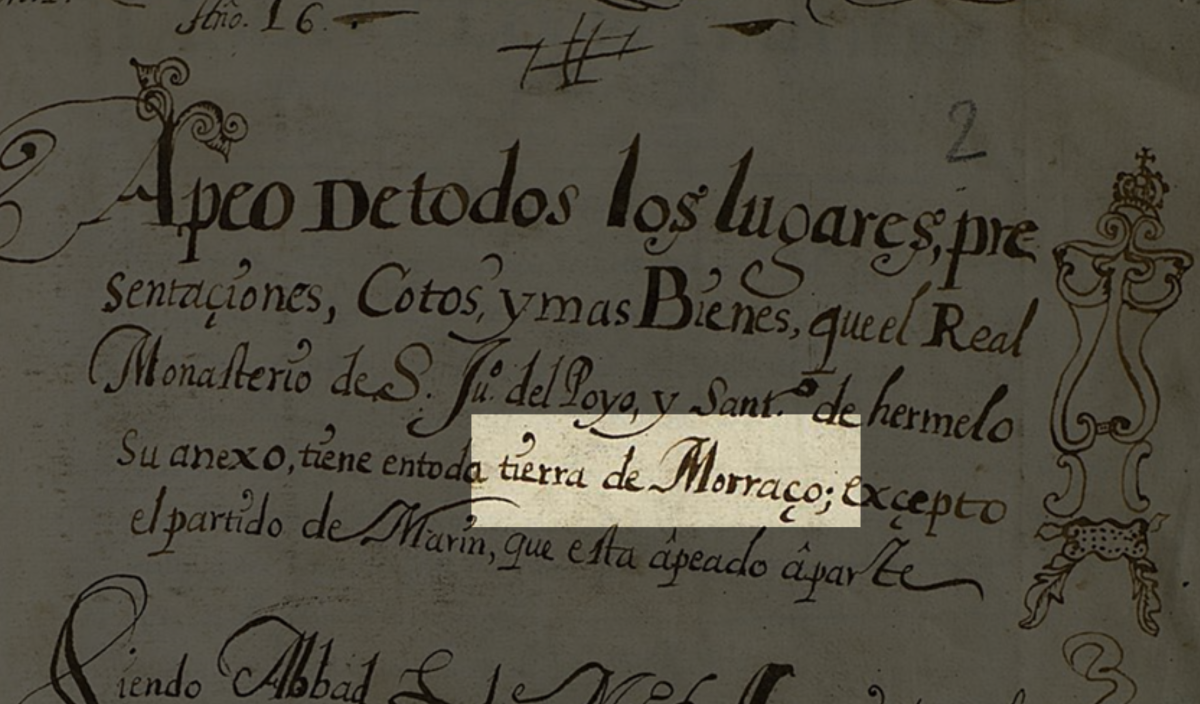 Año. 16.
2
Apeo De todos los lugares, pre
sentaçiones, Cotos, y mas Bienes, que el Real
Monasterio de S. Juº. del Poyo, y Sant.º de hermelo
Su anexo, tiene en toda tierra de Morraço; exçepto
el partido de Marin, que esta âpeado âparte
Siendo Abbad